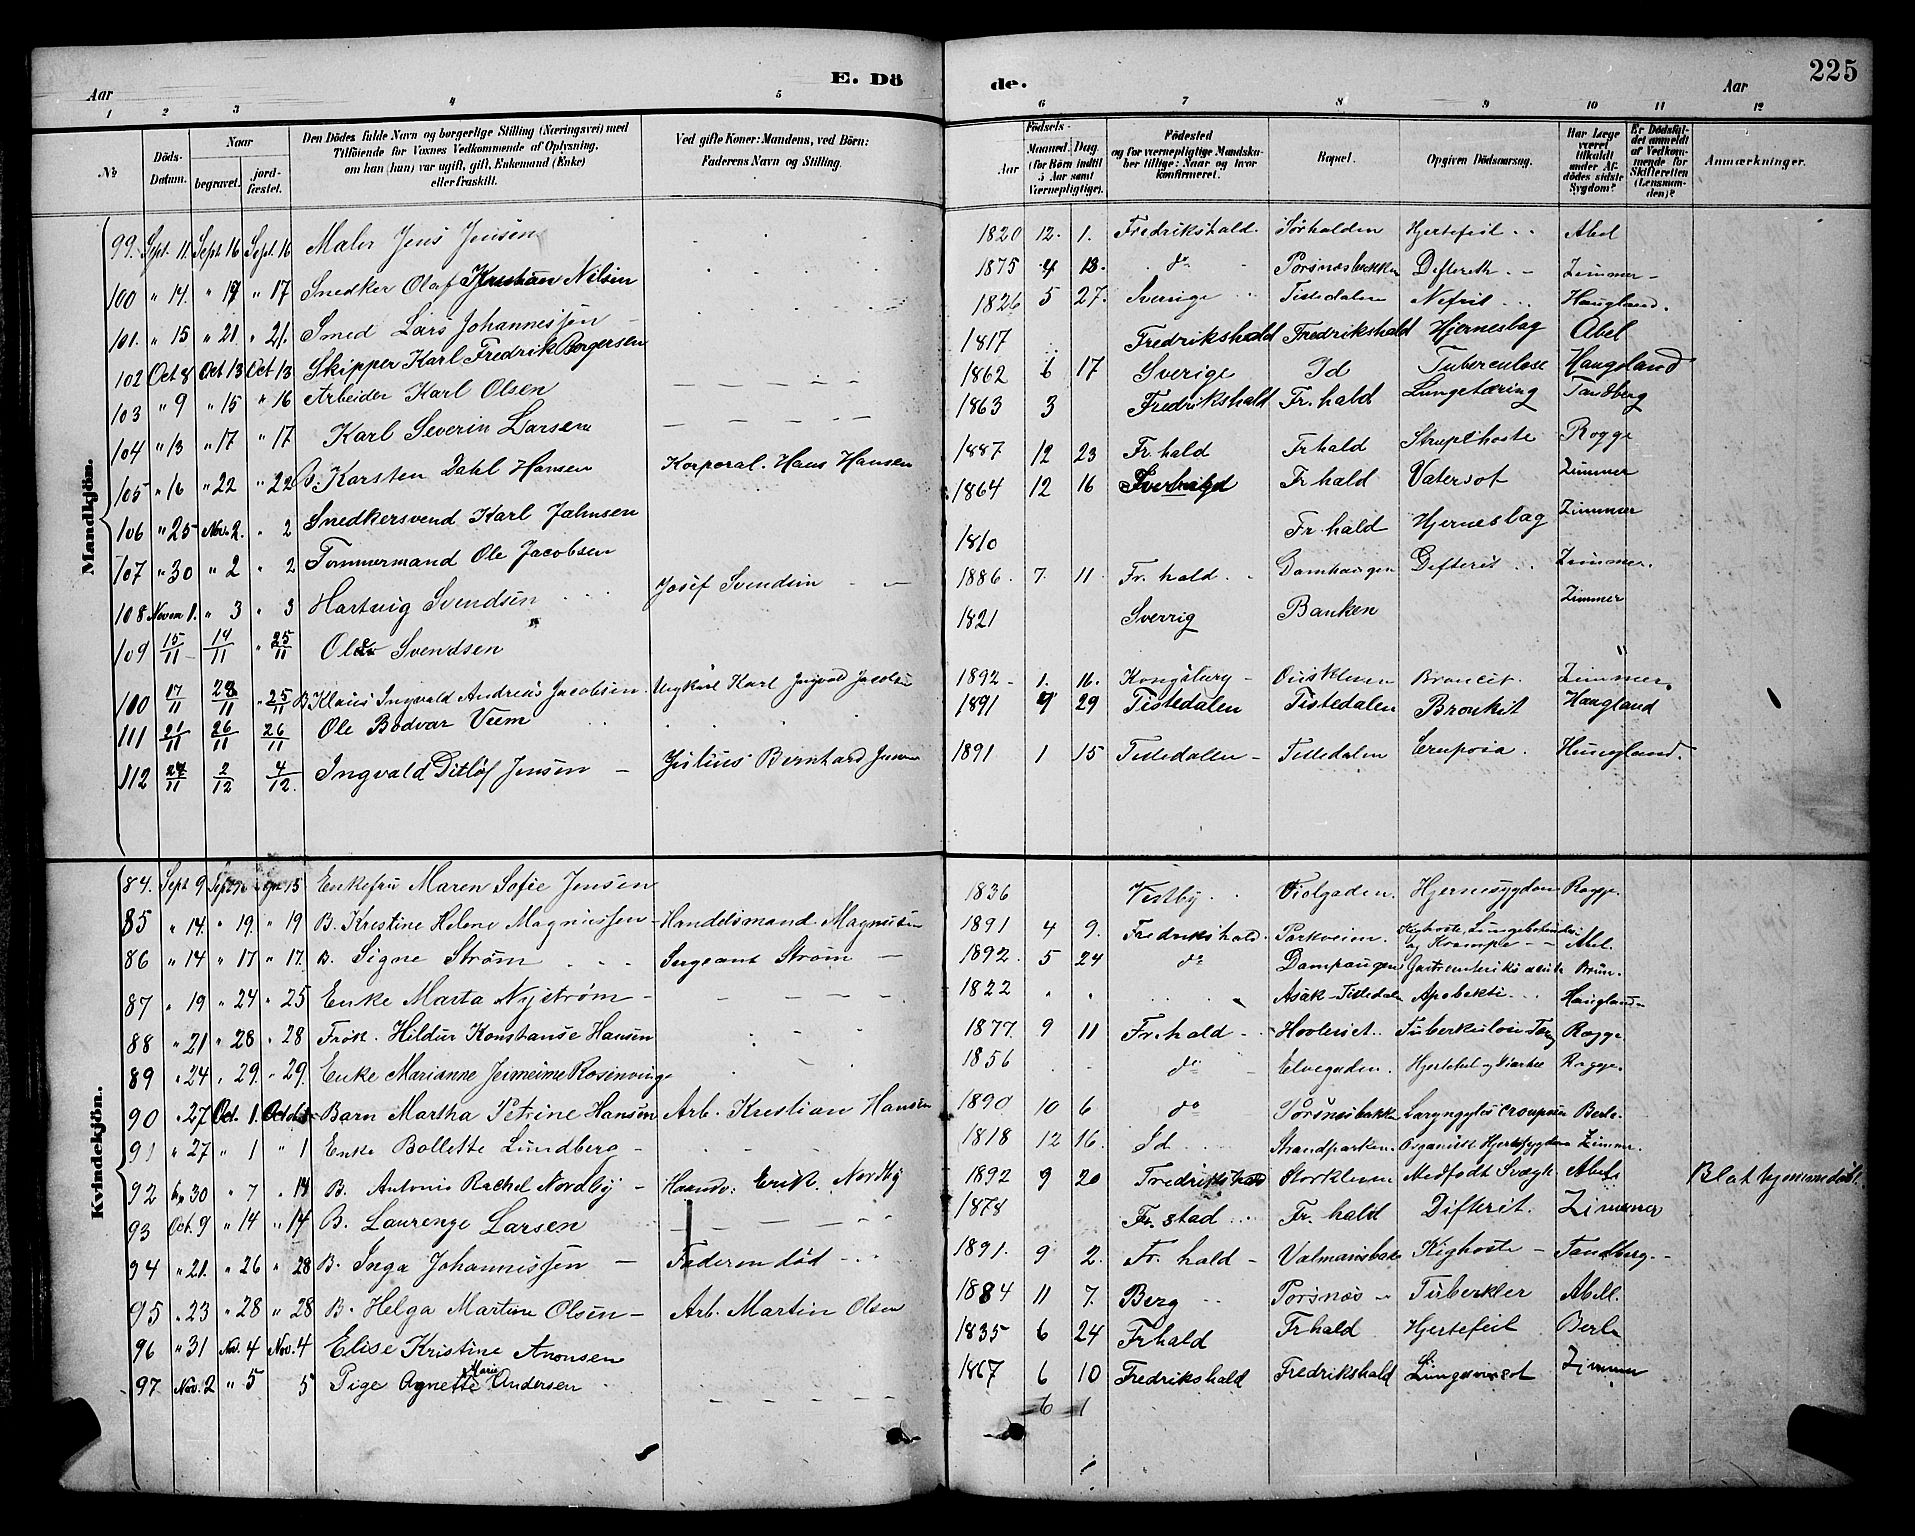 Aar E. Dö de. Aar 225
1 2 3 4 5 6 7 8 9 10 11 12
№ Döds-Datum. Naar begravet. jordfæstet. Den Dödes fulde Navn og borgerlige Stilling (Næringsvei) med Tilföiende for Voxnes Vedkommende af Oplysning, om han (hun) var ugift, gift, Enkemand (Enke) eller fraskilt. Ved gifte Koner: Mandens, ved Börn: Faderens Navn og Stilling. Födsels- Aar Maaned. Dag. (for Börn indtil 5 Aar samt Værnepligtige). Födested og for værnepligtige Mandskaber tillige: Naar og hvor konfirmeret. Bopæl. Opgiven Dödsaarsag. Har Læge været tilkaldt under Afdödes sidste Sygdom? Er Dödsfaldet anmeldt af Vedkommende for Skifteretten (Lensmanden)? Anmærkninger.
Mandkjön.
99. Sept. 11. Sept 16 Sept. 16 Maler Jens Jensen 1820 12. 1. Fredrikshald. Sørhalden Hjertefeil Abel
100 " 14. " 17 " 17 Snedker Olaf Kristian Nilsen 1875 4 13. do Porsnæsbakken Difterith. - Zimmer -
101. " 15 " 21 " 21. Smed Lars Johannessen 1826 5 27. Sverige Tistedalen Nefrit Haugland.
102 Oct 8 Oct 13 Oct 13 Skipper Karl Fredrik Borgersen 1817 Fredrikshald Fredrikshald Hjerneslag Abel
103 " 9 " 15 " 16 Arbeider Karl Olsen 1862 6 17 Sverige Id Tuberculose Haugland
104 " 13 " 17 " 17 Karl Severin Larsen 1863 3 Fredrikshald Fr. hald Lungetæring Tandberg
105 " 16 " 22 " 22 B. Karsten Dahl Hansen Korporal. Hans Hansen 1887 12 23 Fr. hald Fr hald Strupehoste Rogge
106 " 25 Nov. 2. " 2 Snedkersvend Karl Jahnsen 1864 12 16 Fr hald Vatersot Zimmer
107 " 30 " 2 " 2 Tømmermand Ole Jacobsen 1810 Fr hald Hjerneslag Zimmer
108 Novem 1. " 3 " 3 Hartvig Svendsen Josef Svendsen 1886. 7. 11. Fr. hald Damhaugen Difterit Zimmer.
109 15/11 19/11 " 25/11 Svendsen 1821 Sverrig Banken Zimmer
100 17/11 28/11 " 25/11 B Klaus Ingvald Andreas Jacobsen Ungkarl Karl Ingvad Jacobsen 1892 1. 16. Kongsberg - Bronkit. Zimmer.
111 21/11 26/11 26/11 Ole Bodvar Veem 1891 9 29 Tistedalen Tistedalen Bronkit Haugland
112 27/11 2/12 4/12. Ingvald Ditlef Jensen - Julius Bernhard Jensen 1891 1 15 Tistedalen - Tistedalen Haugland.
Kvindekjön.
84. Sept 9 15 Enkefru Maren Sofie Jensen 1836 Vestby Violgaden. Hjernesygdom Rogge.
85 " 14. " 19. " 19 B. Kristine Helene Magnussen - Handelsmand. Magnusen 1891 4 9. Fredrikshald. Parkveien. Kighoste, Lungebetændelse og Krampe - - Abel.
86 " 14 " 17 " 17. B. Signe Strøm Sergeant Strøm - 1892. 5 24 do Damhaugen Brun.
87 " 19 " 24 " 25 Enke Marta Nystrøm - 1822 Asak - Tistedalen Apoplekti Haugland
88 " 21 " 28 " 28 Frøk. Hildur Konstanse Hansen 1877. 9 11 Fr. hald - Tuberkulose Rogge
89 " 24 " 29. " 29. Enke Marianne Rosenvinge 1856 do Elvegaden. Hjertefeil og Diarhee Rogge.
90 " 27 Oct. 1. Octob. Barn Martha Petrine Hansen Arb. Kristian Hansen 1890 10 6 do Porsnæsbakken Berle
91 " 27 " 1 " 1 Enke Bollette Lundberg - 1818 12 16. Id Strandparken. Organisk Hjertesygdom Zimmer.
92 30 " 7 " 14 B. Antonie Rachel Nordby - Haandv: Erik. Nordby 1892 9 20 Fredrikshald Storkleven Medfødt Svagh. Abel Blot hjemmedøbt.
93 Oct. 9 " 14 " 14 B. Laurenze Larsen 1878 Fr. stad Fr. hald Difterit. Zimmer
94 " 21. " 26 " 28 B. Inga Johannessen - Faderen død 1891. 9 2. Fr. hald - Kighoste - Tandberg -
95 " 23 " 28 " 28 B. Helga Martine Olsen - Arb. Martin Olsen 1884 11 7. Berg Porsnæs Tuberkler Abell.
96 " 31 Nov. 4 Nov. 4 Elise Kristine Anonsen 1835 6 24 Fr hald Fr hald Hjertefeil Berle
97 Nov. 2 " 5 5 Pige Agnette Marie Andersen 1867 6 10 Fredrikshald Fredrikshald Zimmer
6 1